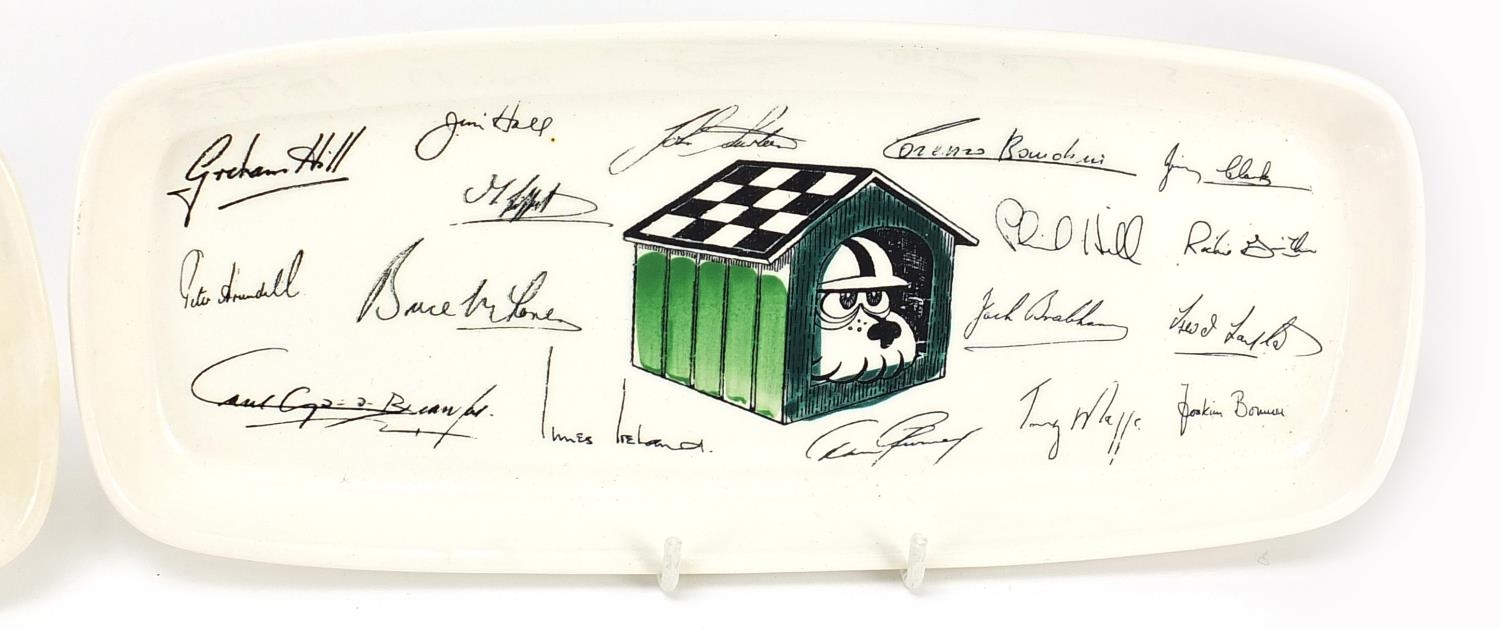 Graham Hill
Jim Hall.
John Surtees
Lorenzo Bandini
Jim Clark
Phil Hill
Richie Ginther
Peter Arundell
Bruce McLaren
Jack Brabham
Trevor Taylor
Innes Ireland.
Dan Gurney
Tony Maggs
Joakim Bonnier